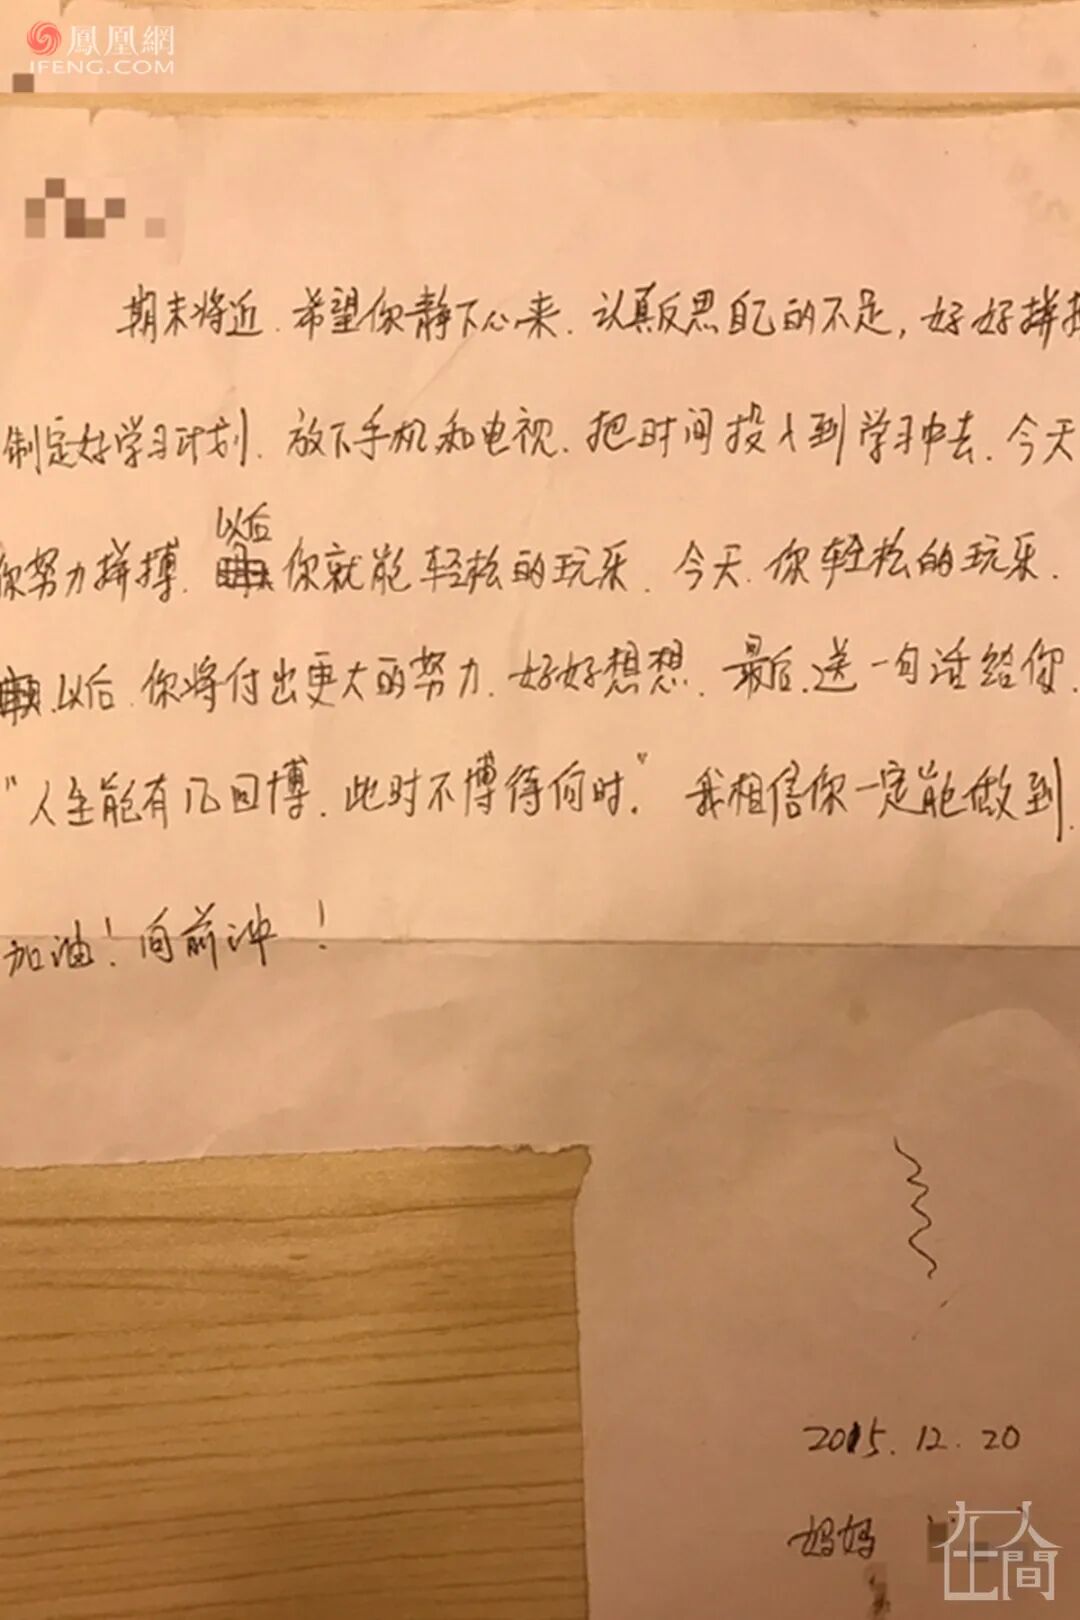 鳳凰網
IFENG.COM
期末将近.希望你静下心来.认真反思自己的不足,好好拼搏
制定好学习计划.放下手机和电视.把时间投入到学习中去.今天
以后
你努力拼搏.你就能轻松的玩乐.今天.你轻松的玩乐.
以后.你将付出更大的努力.好好想想.最后.送一句话给你.
"人生能有几回博.此时不博待何时."我相信你一定能做到.
加油!向前冲!
2015.12.20
妈妈
在人間